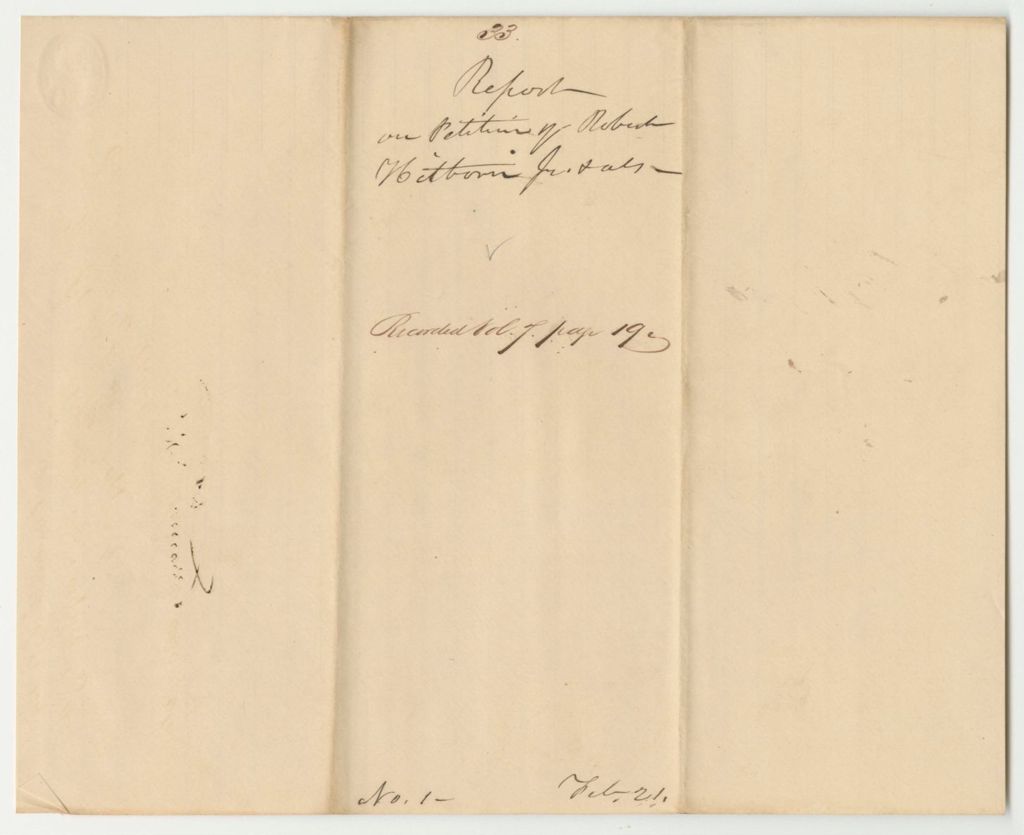 33.
Report
on Petition of Robert
Hitborn Jr. & als
Recorded Vol. 7. page 19
No. 1
Feb. 21.